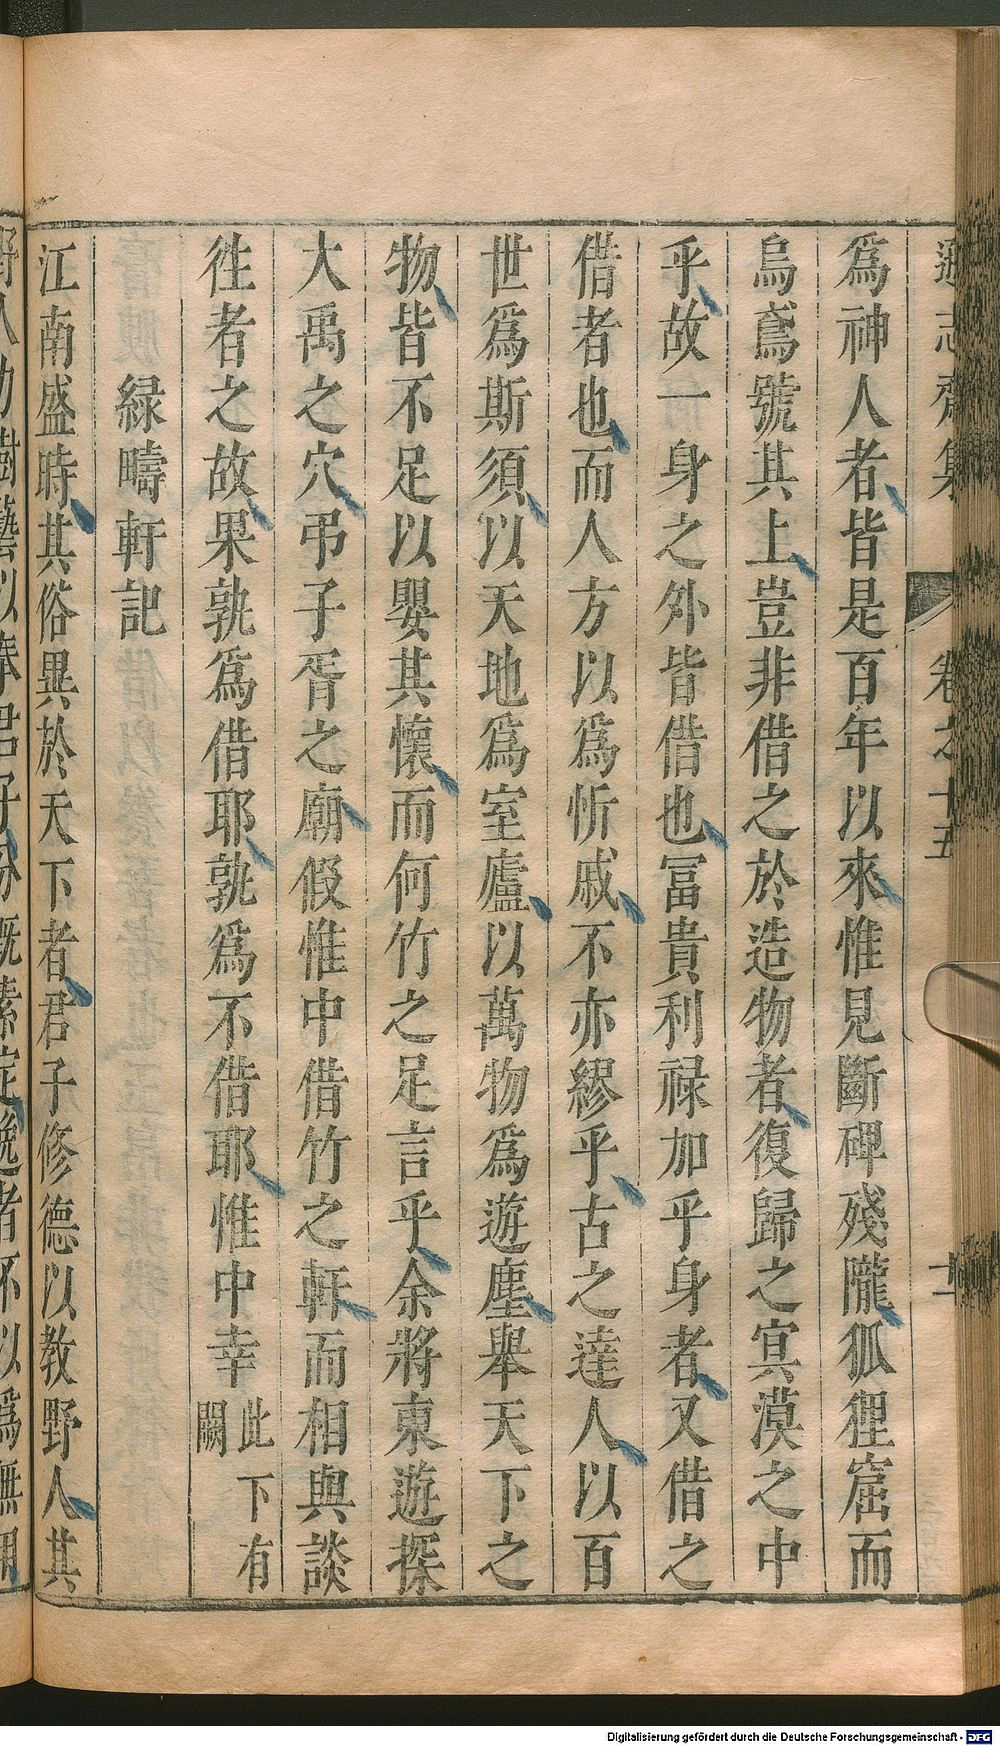 遜志齋集 卷之十五
爲神人者皆是百年以來惟見斷碑殘隴狐狸窟而
烏鳶號其上豈非借之於造物者復歸之冥漠之中
乎故一身之外皆借也冨貴利祿加乎身者又借之
借者也而人方以爲忻戚不亦繆乎古之達人以百
世爲斯須以天地爲室廬以萬物爲遊塵舉天下之
物皆不足以嬰其懷而何竹之足言乎余將東遊探
大禹之穴弔子胥之廟假惟中借竹之軒而相與談
徃者之故果孰爲借耶孰爲不借耶惟中幸此下有闕
緑疇軒記
江南盛時其俗異於天下者君子修德以教野人其
野人力樹藝以奉君子
Digitalisierung gefördert durch die Deutsche Forschungsgemeinschaft - DFG